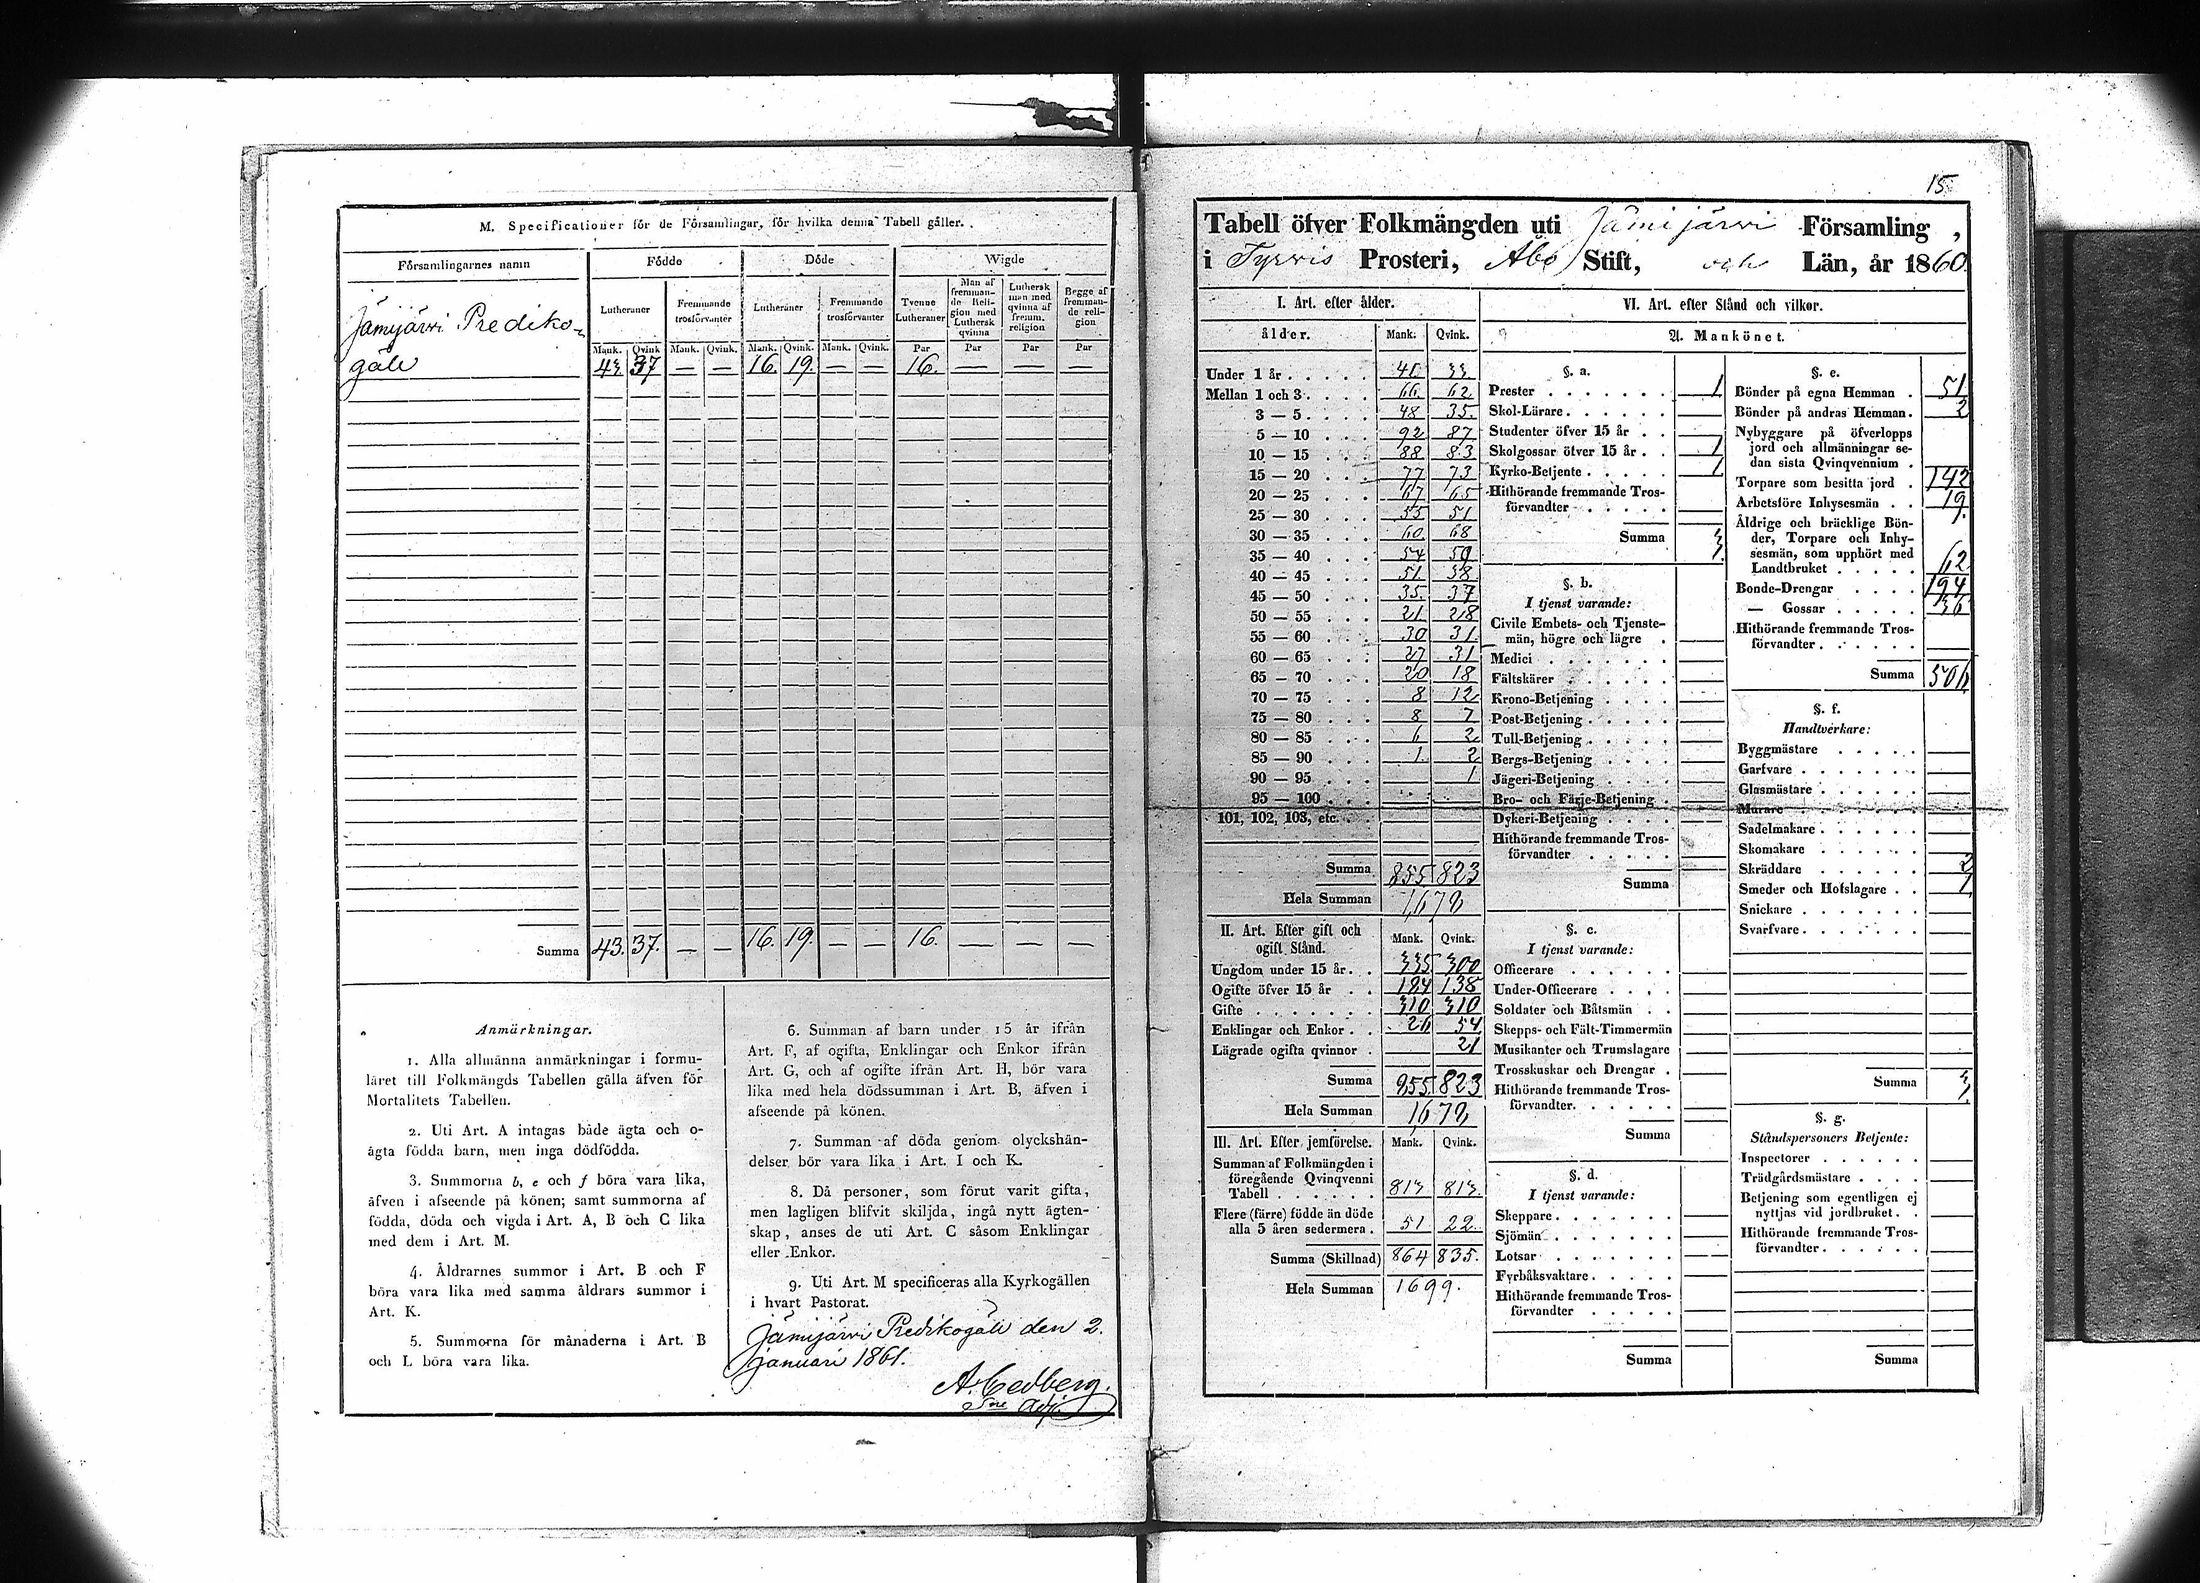 M. Specificationer för de Församlingar, för hvilka denna Tabell gäller.
Församlingarnes namn
Födde
Döde
Wigde
Lutheraner
Fremmande trosförvanter
Lutheraner
Fremmande trosförvanter
Tvenne Lutheraner
Man af fremmande Religion med Luthersk qvinna
Luthersk man med qvinna af fremm. religion
Begge af fremmande religion
Mank. Qvink. Mank. Qvink. Mank. Qvink. Mank. Qvink. Par Par Par Par
Jämijärvi Prediko-
gäll 43 37 — — 16. 19. — — 16. — — —
Summa 43. 37. — — 16. 19. — — 16. — — —
Anmärkningar.
1. Alla allmänna anmärkningar i formu-
läret till Folkmängds Tabellen gälla äfven för
Mortalitets Tabellen.
2. Uti Art. A intagas både ägta och o-
ägta födda barn, men inga dödfödda.
3. Summorna b, e och f böra vara lika,
äfven i afseende på könen; samt summorna af
födda, döda och vigda i Art. A, B och C lika
med dem i Art. M.
4. Åldrarnes summor i Art. B och F
böra vara lika med samma åldrars summor i
Art. K.
5. Summorna för månaderna i Art. B
och L böra vara lika.
6. Summan af barn under 15 år ifrån
Art. F, af ogifta, Enklingar och Enkor ifrån
Art. G, och af ogifte ifrån Art. H, bör vara
lika med hela dödssumman i Art. B, äfven i
afseende på könen.
7. Summan af döda genom olyckshän-
delser bör vara lika i Art. I och K.
8. Då personer, som förut varit gifta,
men lagligen blifvit skiljda, ingå nytt ägten-
skap, anses de uti Art. C såsom Enklingar
eller Enkor.
9. Uti Art. M specificeras alla Kyrkogällen
i hvart Pastorat.
Jämijärvi Predikogäll den 2.
januari 1861.
A. Cedberg.
Adj.
15.
Tabell öfver Folkmängden uti Jämijärvi Församling,
i Tyrvis Prosteri, Åbo Stift, och Län, år 1860.
I. Art. efter ålder.
ålder. Mank. Qvink.
Under 1 år 40 33
Mellan 1 och 3 66 62
3 — 5 48 35
5 — 10 92 87
10 — 15 88 83
15 — 20 77 73
20 — 25 67 65
25 — 30 55 51
30 — 35 60 68
35 — 40 54 50
40 — 45 51 38
45 — 50 35 37
50 — 55 21 28
55 — 60 30 31
60 — 65 27 31
65 — 70 20 18
70 — 75 8 12
75 — 80 8 7
80 — 85 6 2
85 — 90 1 2
90 — 95 — 1
95 — 100
101, 102, 103, etc.
Summa 855 823
Hela Summan 1678
II. Art. Efter gift och
ogift Stånd. Mank. Qvink.
Ungdom under 15 år 335 300
Ogifte öfver 15 år 184 138
Gifte 310 310
Enklingar och Enkor 26 54
Lägrade ogifta qvinnor — 21
Summa 855 823
Hela Summan 1678
III. Art. Efter jemförelse. Mank. Qvink.
Summan af Folkmängden i
föregående Qvinqvenni
Tabell 813 813
Flere (färre) födde än döde
alla 5 åren sedermera 51 22
Summa (Skillnad) 864 835.
Hela Summan 1699.
VI. Art. efter Stånd och vilkor.
A. Mankönet.
§. a.
Prester 1
Skol-Lärare
Studenter öfver 15 år
Skolgossar öfver 15 år 1
Kyrko-Betjente 1
Hithörande fremmande Tros-
förvandter
Summa 3
§. b.
I tjenst varande:
Civile Embets- och Tjenste-
män, högre och lägre
Medici
Fältskärer
Krono-Betjening
Post-Betjening
Tull-Betjening
Bergs-Betjening
Jägeri-Betjening
Bro- och Färje-Betjening
Dykeri-Betjening
Hithörande fremmande Tros-
förvandter
Summa
§. c.
I tjenst varande:
Officerare
Under-Officerare
Soldater och Båtsmän
Skepps- och Fält-Timmermän
Musikanter och Trumslagare
Trosskuskar och Drengar
Hithörande fremmande Tros-
förvandter
Summa
§. d.
I tjenst varande:
Skeppare
Sjömän
Lotsar
Fyrbåksvaktare
Hithörande fremmande Tros-
förvandter
Summa
§. e.
Bönder på egna Hemman 51
Bönder på andras Hemman 2
Nybyggare på öfverlopps
jord och allmänningar se-
dan sista Qvinqvennium
Torpare som besitta jord 142
Arbetsföre Inhysesmän 19
Åldrige och bräcklige Bön-
der, Torpare och Inhy-
sesmän, som upphört med
Landtbruket 62
Bonde-Drengar 194
— Gossar 36
Hithörande fremmande Tros-
förvandter
Summa 506
§. f.
Handtverkare:
Byggmästare
Garfvare
Glasmästare
Murare
Sadelmakare
Skomakare
Skräddare 2
Smeder och Hofslagare 1
Snickare
Svarfvare
Summa 3
§. g.
Ståndspersoners Betjente:
Inspectorer
Trädgårdsmästare
Betjening som egentligen ej
nyttjas vid jordbruket
Hithörande fremmande Tros-
förvandter
Summa